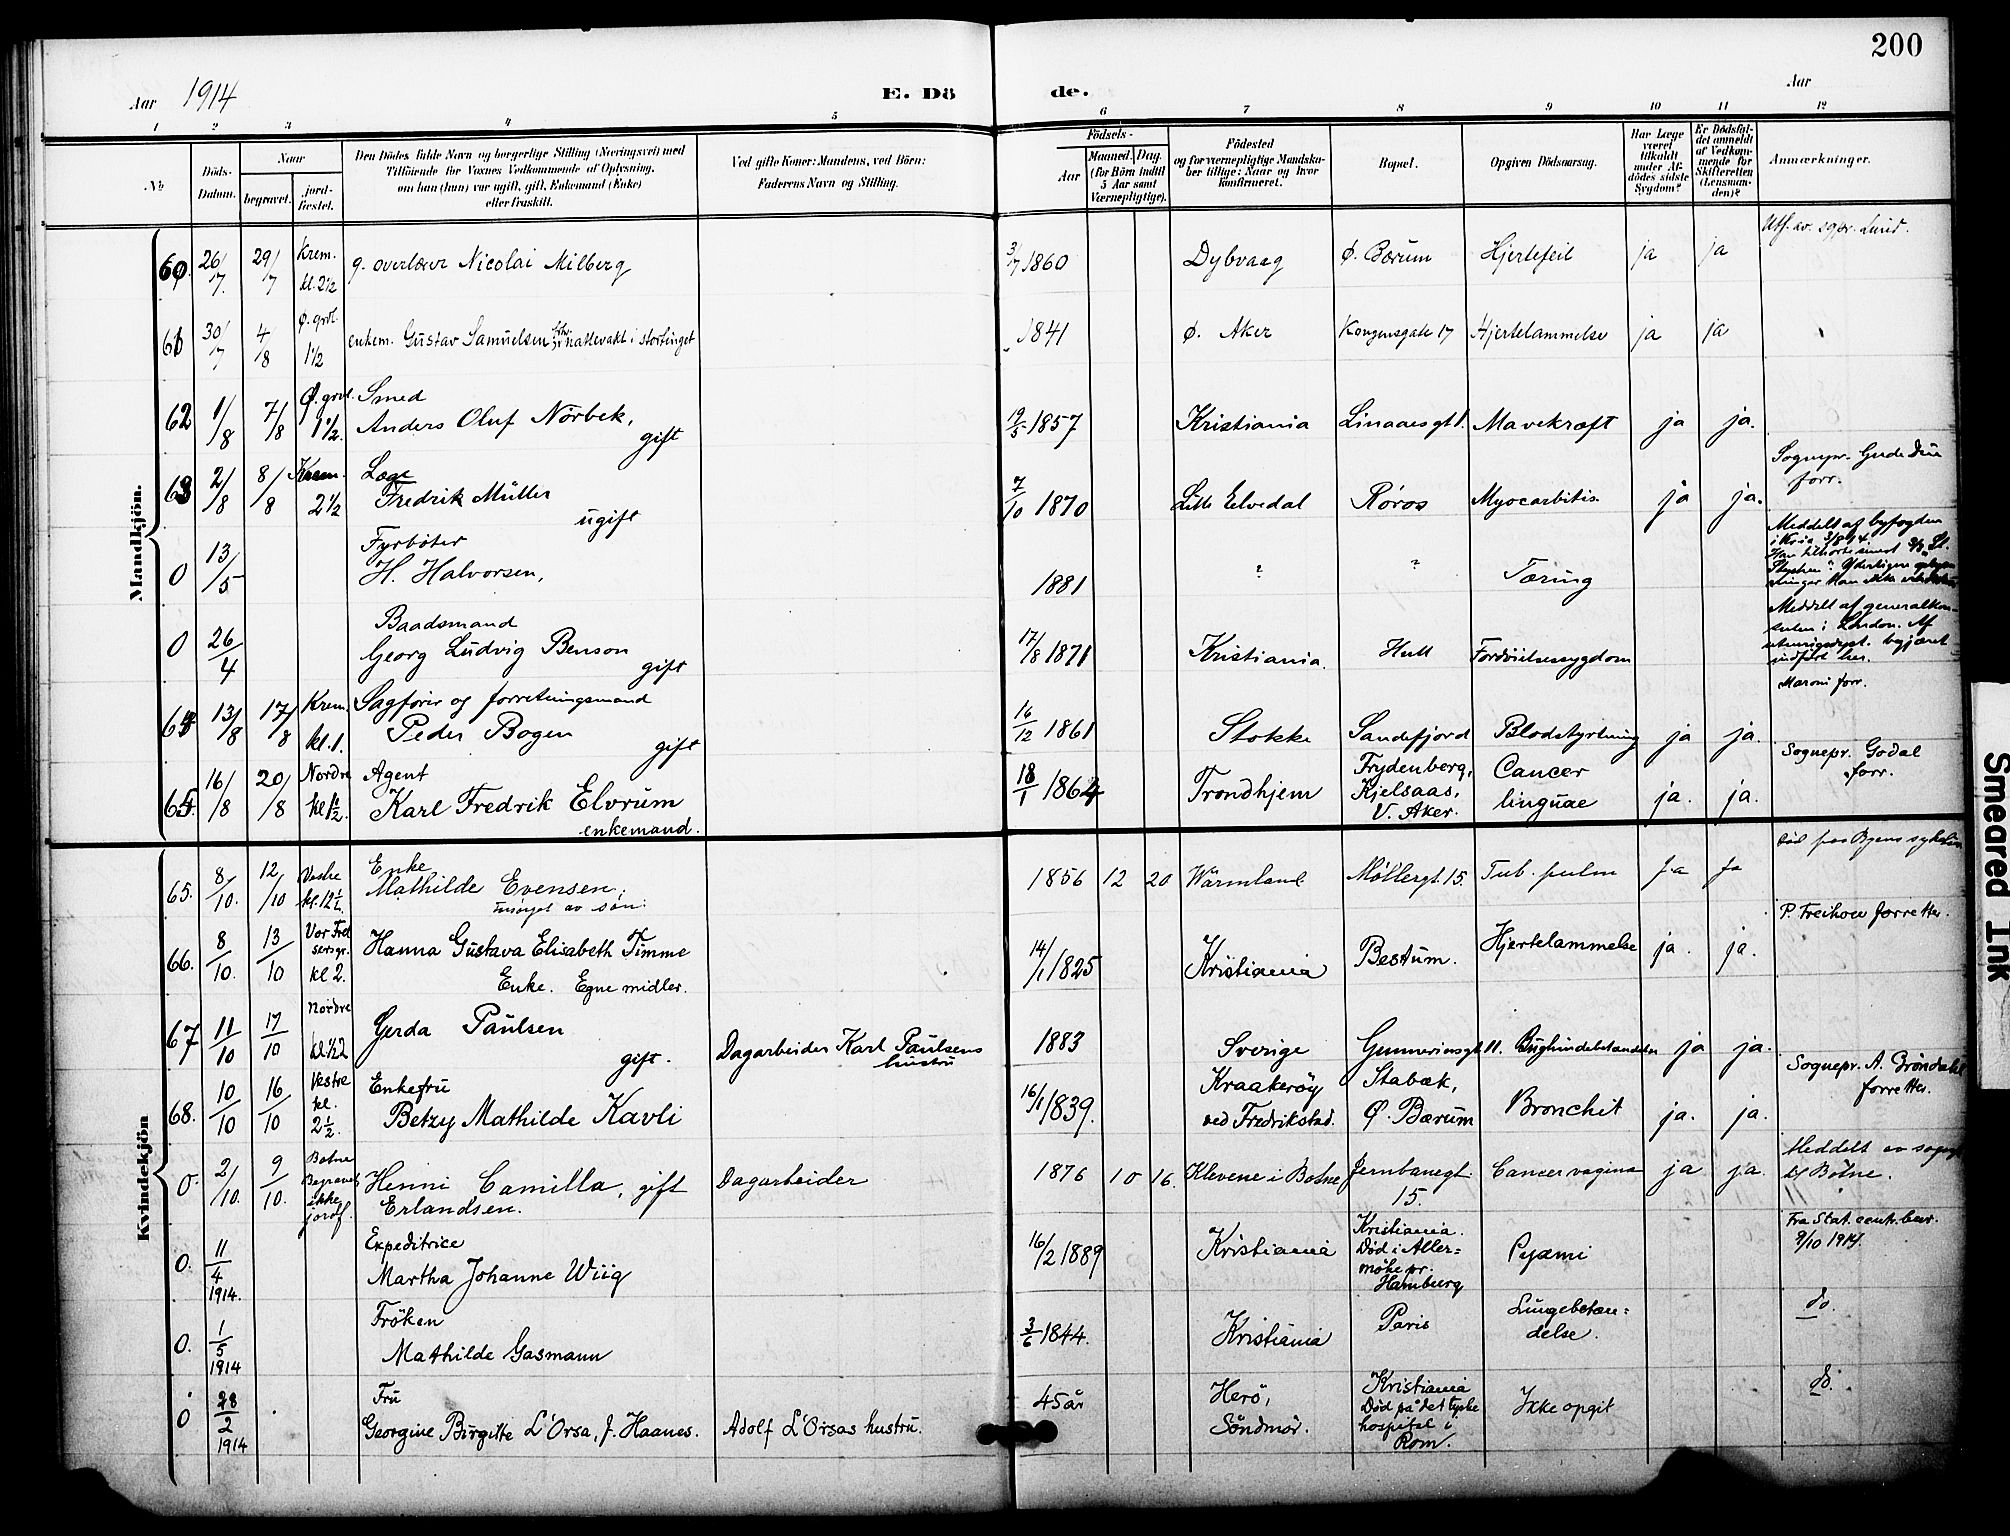 200
Aar 1914
E. Dö de.
Aar
1 2 3 4 5 6 7 8 9 10 11 12
No
Döds-Datum.
Naar
begravet.
jord-fæstet.
Den Dödes fulde Navn og borgerlige Stilling (Næringsvei) med
Tilföiende for Voxnes Vedkommende af Oplysning,
om han (hun) var ugift, gift, Enkemand (Enke)
eller fraskilt.
Ved gifte Koner: Mandens, ved Börn:
Faderens Navn og Stilling.
Födsels-
Aar
Maaned. Dag.
(for Börn indtil
5 Aar samt
Værnepligtige).
Födested
og for værnepligtige Mandska-
ber tillige: Naar og hvor
konfirmeret.
Bopæl.
Opgiven Dödsaarsag.
Har Læge
været
tilkaldt
under Af-
dødes sidste
Sygdom?
Er Dödsfal-
det anmeldt
af Vedkom-
mende for
Skifteretten
(Lensman-
den)?
Anmærkninger.
Mandkjön.
60 26/7 29/7 Krem. kl. 2½ g. overlærer Nicolai Milberg 3/7 1860 Dybvaag Ø. Bærum Hjertefeil ja ja Utf. av sgpr. Lund.
61 30/7 4/8 Ø. grvl. 1½ enkem. Gustav Samuelsen nattevakt i stortinget 1841 Ø. Aker Kongensgate 17 Hjertelammelse ja ja
62 1/8 7/8 Ø. grvl. 1½. Smed
Anders Oluf Nörbek, gift 19/5 1857 Kristiania Linaaesgt 1. Mavekræft ja ja.
63 2/8 8/8 Krem. 2½ Læge
Fredrik Müller ugift 7/10 1870 Lille Elvedal Röros Myocarbitis ja ja. Sognepr. Gude Due forr.
0 13/5 Fyrböter
H. Halvorsen, 1881 ? ? Tæring Meddelt af byfogden
i Kria 3/8 14.
0 26/4 Baadsmand
Georg Ludvig Benson gift 17/8 1871 Kristiania. Hull Fordøielsessygdom Meddelt af generalkon-
sulen i London. Af
utenrigsdept. begjæret
indfört her.
64 13/8 17/8 Krem. kl. 1. Sagförer og forretningsmand
Peder Bogen gift 16/12 1861 Stokke Sandefjord Blodstyrtning ja ja. Maroni forr.
65. 16/8 20/8 Nordre kl 1½. Agent
Karl Fredrik Elvrum
enkemand. 18/1 1864 Trondhjem Frydenberg,
Kjelsaas,
V. Aker. Cancer
linguae ja. ja. Sognepr. Godal
forr.
Kvindekjön
65. 8/10. 12/10 Vestre kl. 12½. Enke
Mathilde Evensen;
forsörget av sön. 1856 12 20 Wärmland Möllergt. 15. Tub. pulm Ja Ja Död paa Byens sykehus
66. 8/10. 13/10 Vor Frel sersgr. kl 2. Hanna Gustava Elisabeth Timme
Enke. Egne midler. 14/1 1825 Kristiania Bestum. Hjertelammelse ja. ja. P. Freihow forretter.
67 11/10 17/10 Nordre kl ½2 Gerda Paulsen
gift. Dagarbeider Karl Paulsens
hustru 1883 Sverige Gunneriusgt 11. Bughindebetændelse ja ja.
68. 10/10 16/10 Vestre kl. 2½. Enkefru
Betzy Mathilde Kavli 16/1 1839. Kraakeröy
ved Fredrikstad. Stabæk,
Ø. Bærum Bronchit ja. ja. Sognepr. A. Gröndahl
forretter.
0. 2/10. 9/10. Botne Begravet ikke jordf. Henni Camilla, gift
Erlandsen. Dagarbeider 1876 10 16. Klevene i Botne Jernbanegt.
15. Cancer vagina ja ja. Meddelt av sognepr
til Botne.
0. 11/4 1914. Expeditrice
Martha Johanne Wiig 16/2 1889 Kristiania Kristiania.
Död i Aller=
möhe pr.
Hamburg Pyæmi Fra Stat. centr. byr.
9/10 1914.
0. 1/5 1914 Fröken
Mathilde Gasmann 3/6 1844. Kristiania Paris Lungebetæn=
delse. do.
0 28/2 1914 Fru
Georgine Birgitte L'Orsa, f. Haanes. Adolf L'Orsas hustru. 45 år Herö,
Söndmör. Kristiania
Död på det tyske
hospital i
Rom. Ikke opgit do.
Smeared Ink